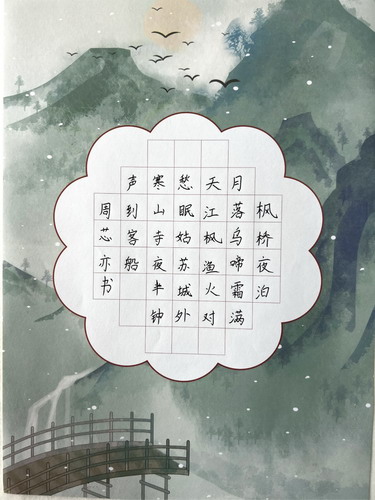 枫桥夜泊
月落乌啼霜满
天江枫渔火对
愁眠姑苏城外
寒山寺夜半钟
声到客船
周芯亦书